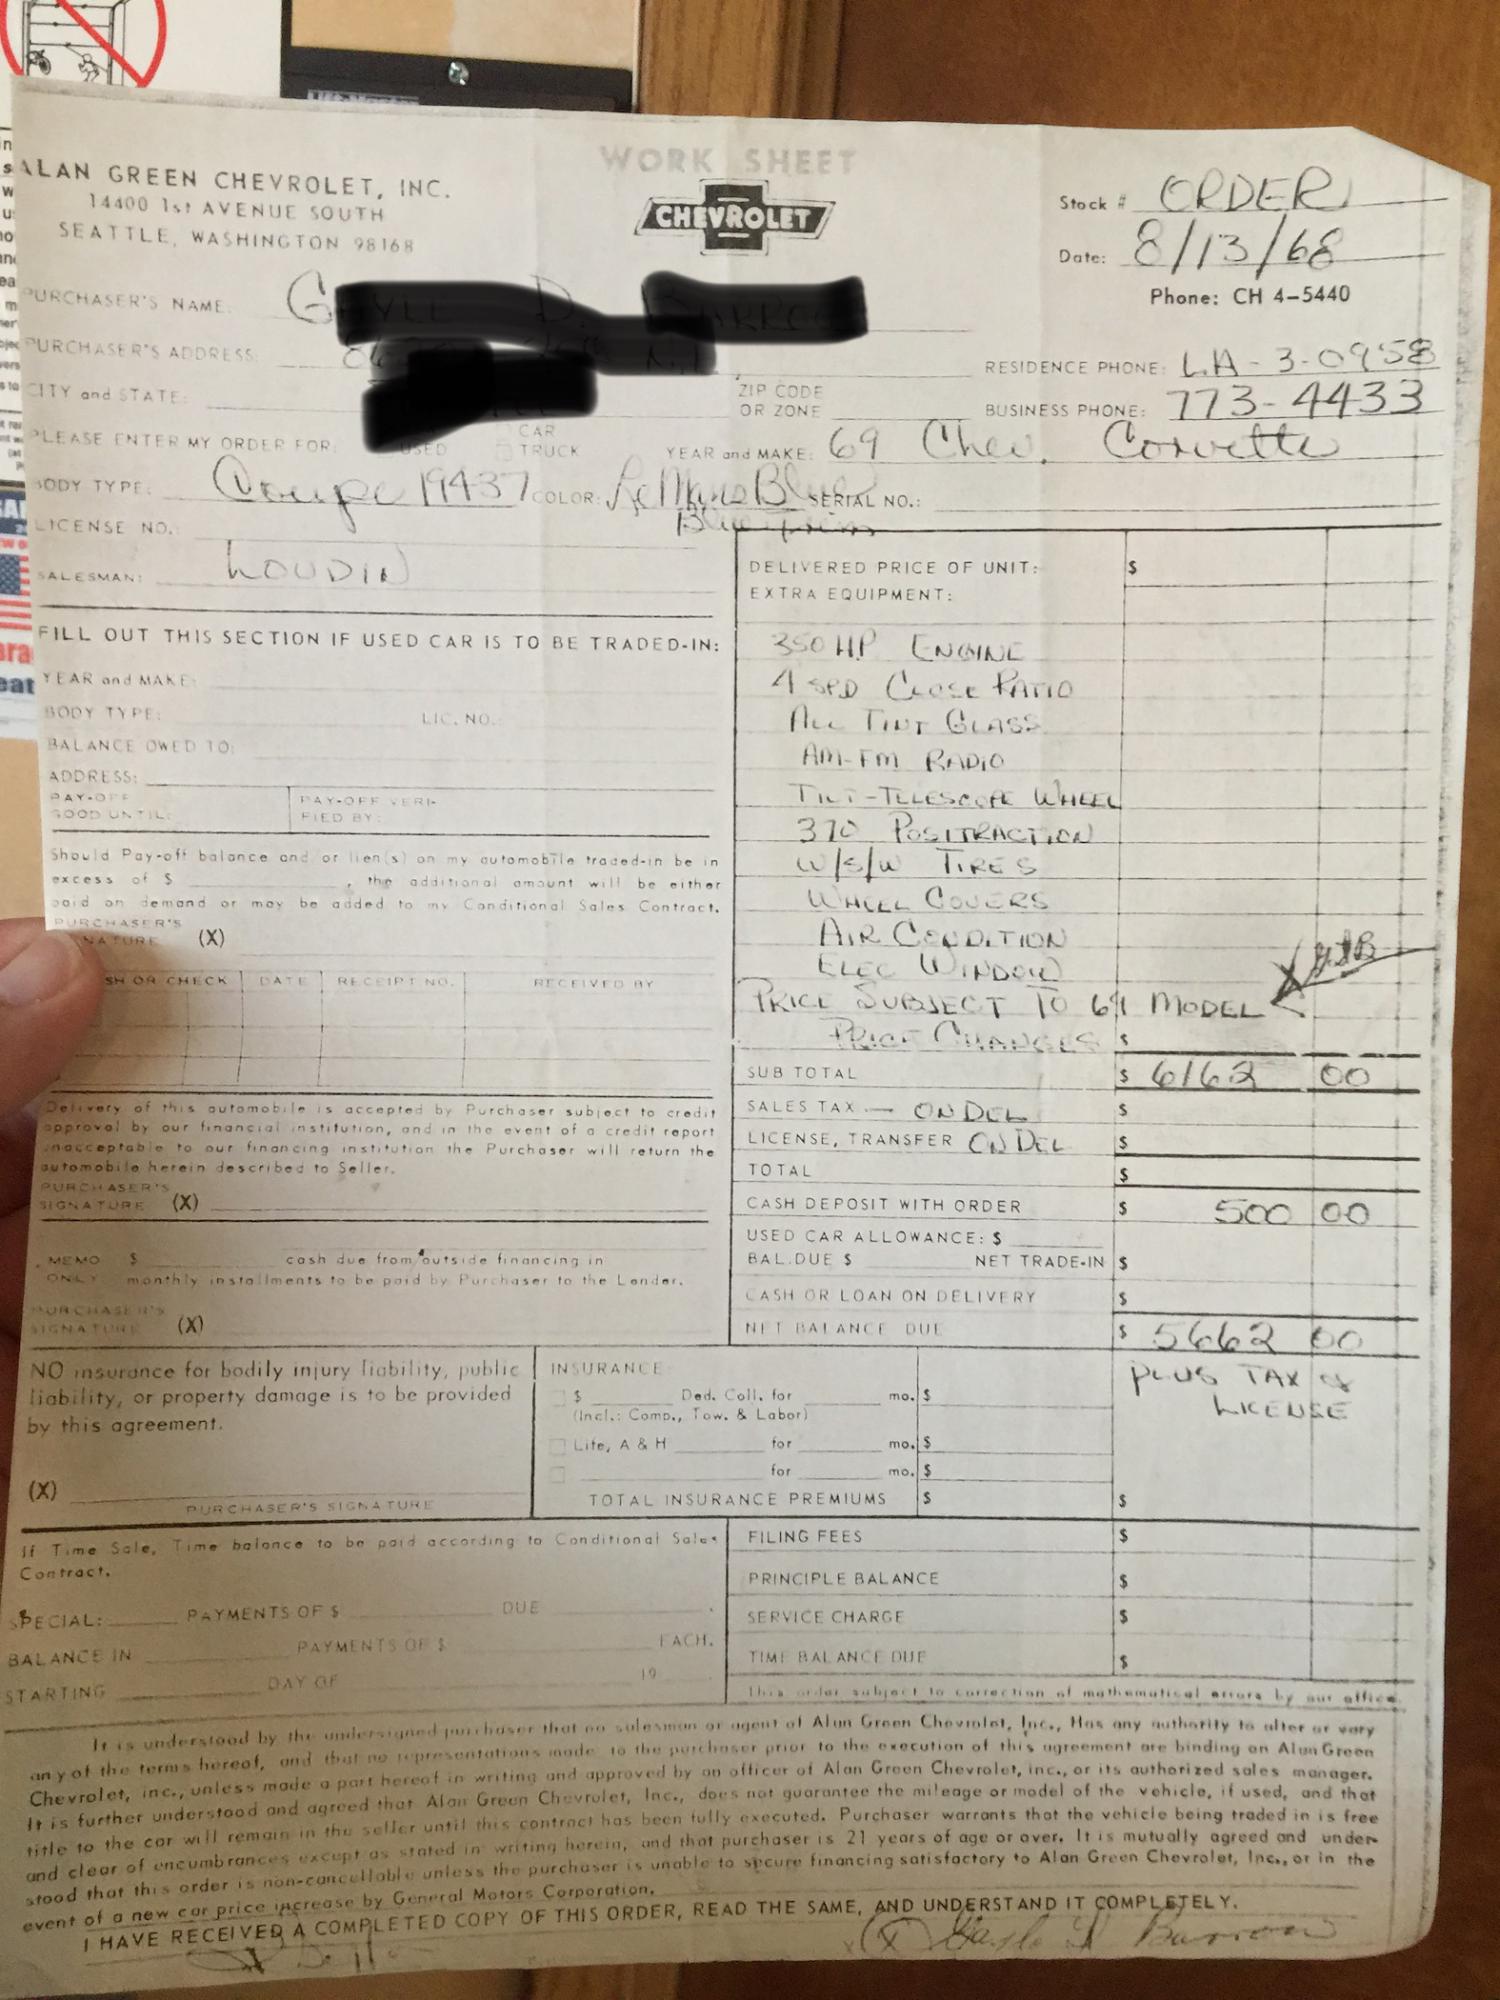 WORK SHEET
ALAN GREEN CHEVROLET, INC.
14400 1st AVENUE SOUTH
SEATTLE, WASHINGTON 98168
CHEVROLET
Stock # ORDER
Date: 8/13/68
Phone: CH 4-5440
PURCHASER'S NAME: D.
PURCHASER'S ADDRESS:
RESIDENCE PHONE: LA-3-0958
CITY and STATE:
ZIP CODE
OR ZONE
BUSINESS PHONE: 773-4433
PLEASE ENTER MY ORDER FOR: USED CAR
TRUCK
YEAR and MAKE: 69 Chev. Corvette
BODY TYPE: Coupe 19437 COLOR: LeMans Blue SERIAL NO.:
Blue Trim
LICENSE NO.:
SALESMAN: LOUDIN
FILL OUT THIS SECTION IF USED CAR IS TO BE TRADED-IN:
YEAR and MAKE:
BODY TYPE: LIC. NO.:
BALANCE OWED TO:
ADDRESS:
PAY-OFF
GOOD UNTIL:
PAY-OFF VERI-
FIED BY:
Should Pay-off balance and/or lien(s) on my automobile traded-in be in
excess of $ , the additional amount will be either
paid on demand or may be added to my Conditional Sales Contract.
PURCHASER'S
NATURE (X)
SH OR CHECK DATE RECEIPT NO. RECEIVED BY
Delivery of this automobile is accepted by Purchaser subject to credit
approval by our financial institution, and in the event of a credit report
unacceptable to our financing institution the Purchaser will return the
automobile herein described to Seller.
PURCHASER'S
SIGNATURE (X)
MEMO $ cash due from outside financing in
ONLY monthly installments to be paid by Purchaser to the Lender.
PURCHASER'S
SIGNATURE (X)
DELIVERED PRICE OF UNIT: $
EXTRA EQUIPMENT:
350 H.P ENGINE
4 SPD CLOSE RATIO
ALL TINT GLASS
AM-FM RADIO
TILT-TELESCOPE WHEEL
370 POSITRACTION
W/S/W TIRES
WHEEL COVERS
AIR CONDITION
ELEC WINDOW
PRICE SUBJECT TO 69 MODEL
PRICE CHANGES $
SUB TOTAL $ 6162 00
SALES TAX — ON DEL $
LICENSE, TRANSFER ON DEL $
TOTAL $
CASH DEPOSIT WITH ORDER $ 500 00
USED CAR ALLOWANCE: $
BAL.DUE $ NET TRADE-IN $
CASH OR LOAN ON DELIVERY $
NET BALANCE DUE $ 5662 00
PLUS TAX &
LICENSE
NO insurance for bodily injury liability, public
liability, or property damage is to be provided
by this agreement.
(X)
PURCHASER'S SIGNATURE
INSURANCE
$ Ded. Coll. for mo. $
(Incl.: Comp., Tow. & Labor)
Life, A & H for mo. $
for mo. $
TOTAL INSURANCE PREMIUMS $ $
If Time Sale, Time balance to be paid according to Conditional Sales
Contract.
SPECIAL: PAYMENTS OF $ DUE
BALANCE IN PAYMENTS OF $ EACH.
STARTING DAY OF 19
FILING FEES $
PRINCIPLE BALANCE $
SERVICE CHARGE $
TIME BALANCE DUE $
This order subject to correction of mathematical errors by our office.
It is understood by the undersigned purchaser that no salesman or agent of Alan Green Chevrolet, Inc., Has any authority to alter or vary
any of the terms hereof, and that no representations made to the purchaser prior to the execution of this agreement are binding on Alan Green
Chevrolet, inc., unless made a part hereof in writing and approved by an officer of Alan Green Chevrolet, inc., or its authorized sales manager.
It is further understood and agreed that Alan Green Chevrolet, Inc., does not guarantee the mileage or model of the vehicle, if used, and that
title to the car will remain in the seller until this contract has been fully executed. Purchaser warrants that the vehicle being traded in is free
and clear of encumbrances except as stated in writing herein, and that purchaser is 21 years of age or over. It is mutually agreed and under-
stood that this order is non-cancellable unless the purchaser is unable to secure financing satisfactory to Alan Green Chevrolet, Inc., or in the
event of a new car price increase by General Motors Corporation.
I HAVE RECEIVED A COMPLETED COPY OF THIS ORDER, READ THE SAME, AND UNDERSTAND IT COMPLETELY.
x (X) Gayle D Burrow